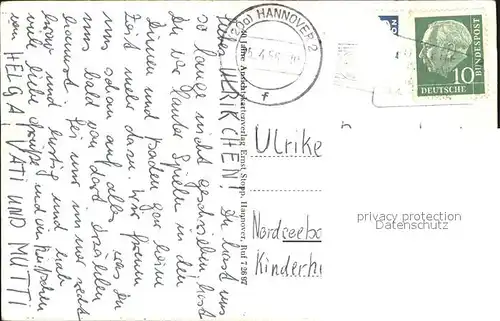 Liebe ULRIKCHEN! Du hast uns
so lange nicht geschrieben, hast
Du vor lauter Spielen in den
Dünen und baden gar keine
Zeit mehr dazu. Wir freuen
uns schon auf alles, was Du
uns bald von dort erzählen
kannst. Sei nur immer recht
brav und lustig und hab
viele liebe Grüße und ein Küßchen
von HELGA, VATI UND MUTTI
Jahre Ansichtskartenverlag Ernst Stopp, Hannover, Ruf 7 28 97
(20a) HANNOVER 2
f
10
DEUTSCHE
BUNDESPOST
Ulrike
Nordseeb
Kinderh
privacy protection
Datenschutz